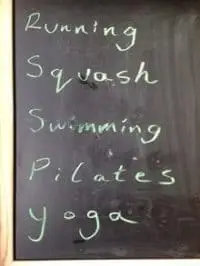 Running
Squash
Swimming
Pilates
yoga